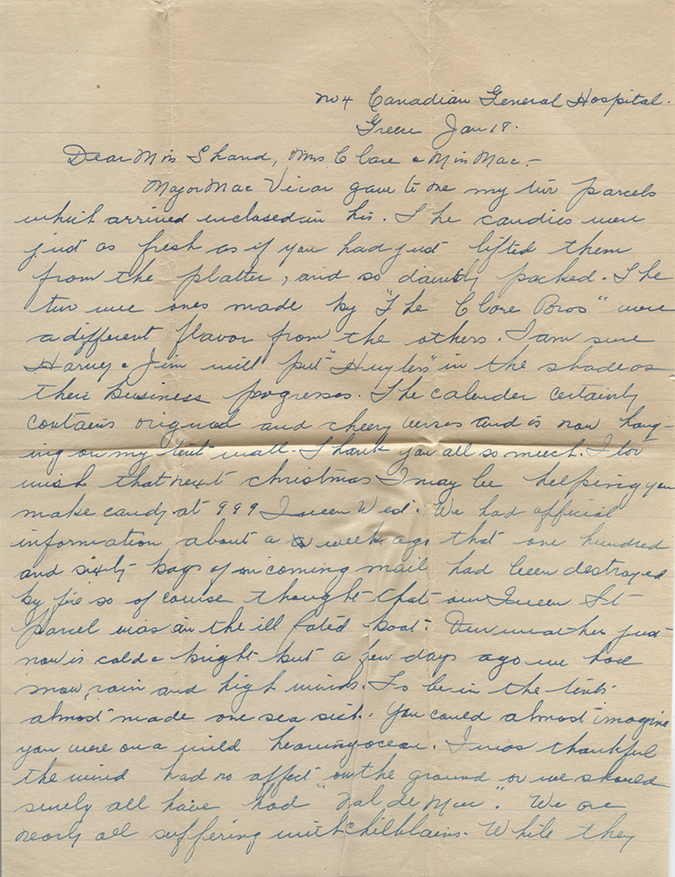 No 4 Canadian General Hospital.
Greece Jan 18.
Dear Miss Shand, Mrs Clare & Miss Mac.-
Major Mac Vicar gave to me my two parcels
which arrived inclosed in his. The candies were
just as fresh as if you had just lifted them
from the platter, and so daintily packed. The
two wee ones made by "The Clare Bros" were
a different flavor from the others. I am sure
Harvey & Jim will put "Huylers" in the shade as
their business progresses. The calender certainly
contains original and cheery verses and is now hang-
ing on my tent wall. Thank you all so much. I too
wish that next christmas I may be helping you
make candy at 999 Queen West. We had official
information about a week ago that one hundred
and sixty bags of incoming mail had been destroyed
by fire so of course thought that our Queen St
Parcel was in the ill fated boat. Our weather just
now is cold & bright but a few days ago we had
snow, rain and high winds. To be in the tents
almost made one sea sick. You could almost imagine
you were on a wild heaving ocean. I was thankful
the wind had no affect on the ground or we should
surely all have had "Mal de Mer". We are
nearly all suffering with chilblains. While they